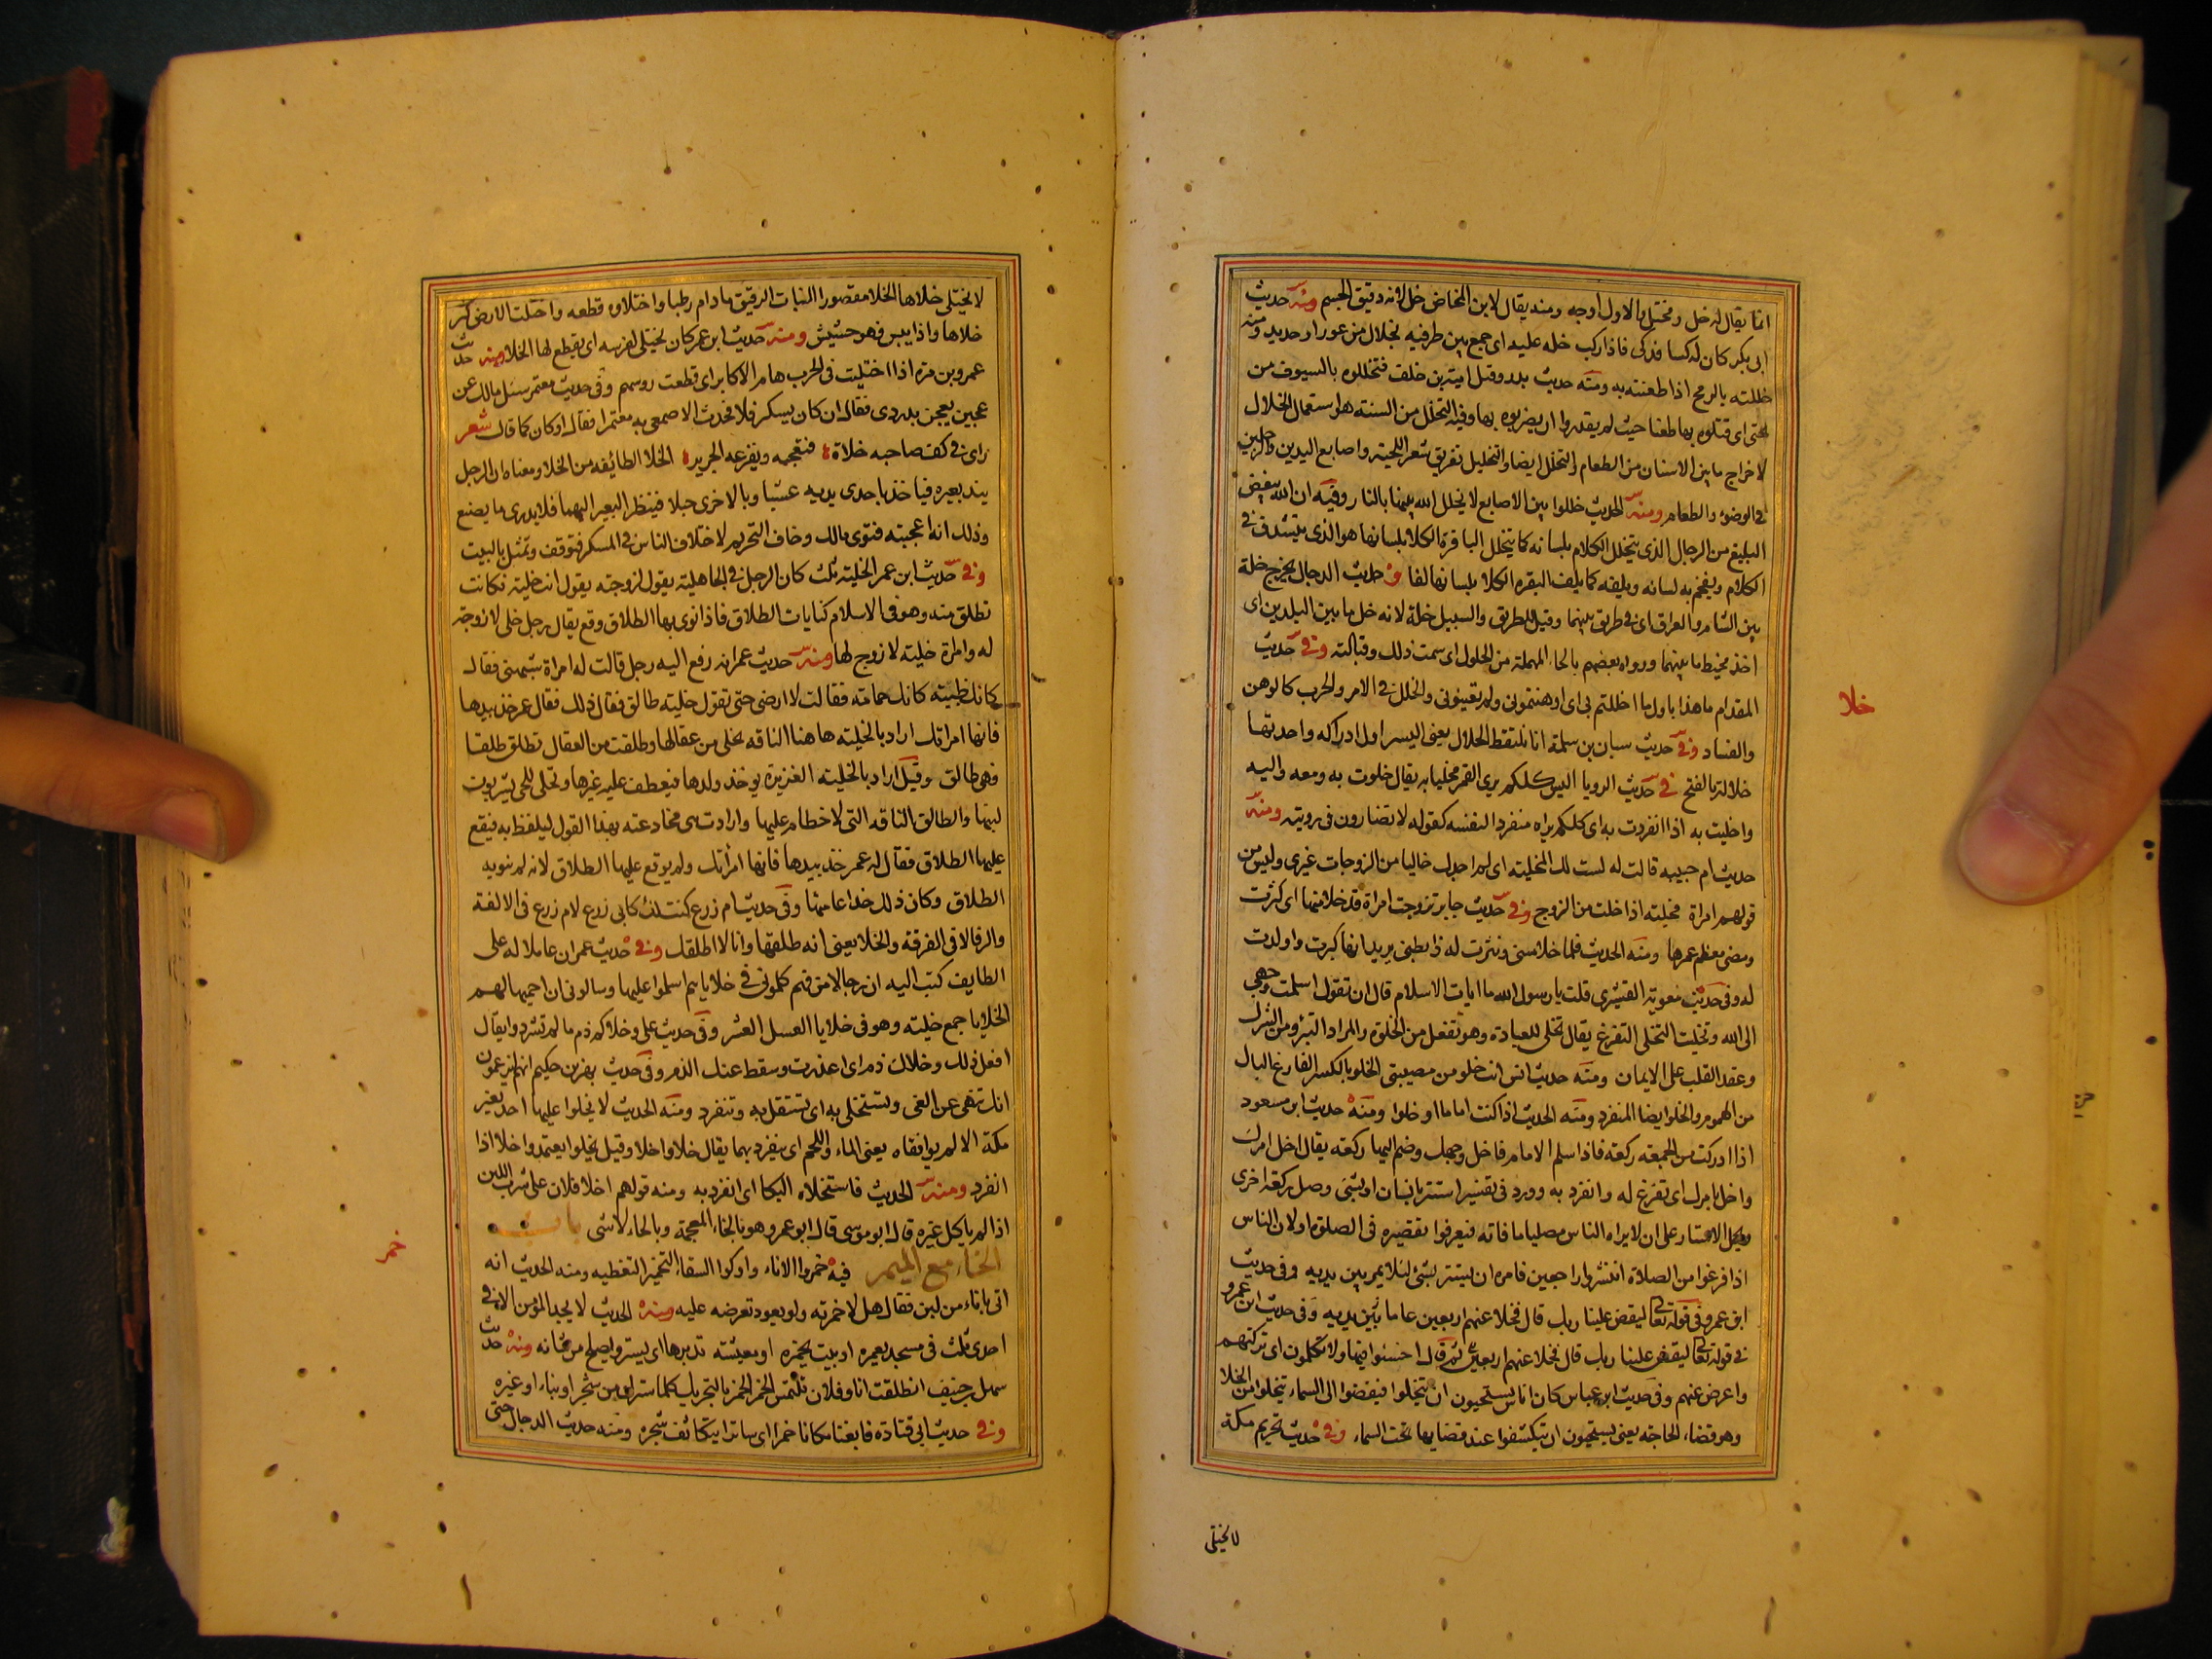 انما يقال له خل ومختل والاول اوجه ومنه يقال لابن المخاض خل لانه دقيق الجسم ومنه حديث
ابى بكر كان له كسا فدكى فاذا ركب خله عليه اى جمع بين طرفيه بخلال من عود او حديد ومنه
خللته بالرمح اذا طعنته به ومنه حديث بدر وقتل امية بن خلف فتخللوه بالسيوف من
تحتى اى قتلوه بها طعنا حيث لم يقدروا ان يضربوه بها وفيه التخلل من السنة هو استعمال الخلال
لاخراج ما بين الاسنان من الطعام والتخلل ايضا والتخليل تفريق شعر اللحية واصابع اليدين والرجلين
فى الوضوء والطعام ومنه الحديث خللوا بين الاصابع لا يخلل الله بينها بالنار وفيه ان الله يبغض
البليغ من الرجال الذى يتخلل الكلام بلسانه كما يتخلل الباقرة الكلا بلسانها هو الذى يتشدق فى
الكلام ويفخم به لسانه ويلفه كما يلف البقرة الكلا بلسانها لفا وفى حديث الدجال يخرج خلة
بين الشام والعراق اى فى طريق بينهما وقيل للطريق والسبيل خلة لانه خل ما بين البلدين اى
اخذ مخيط ما بينهما ورواه بعضهم بالحاء المهملة من الحلول اى سمت ذلك وقبالته وفى حديث
المقدام ما هذا باول ما اخللتم بى اى اوهنتمونى ولم تعينونى والخلل فى الامر والحرب كالوهن
والفساد وفى حديث سنان بن سلمة انا نلتقط الخلال يعنى البسر اول ادراكه واحدتها
خلالة بالفتح فى حديث الرويا اليس كلكم يرى القمر مخليا به يقال خلوت به ومعه واليه
واخليت به اذا انفردت به اى كلكم يراه منفردا لنفسه كقوله لا تضارون فى رويته ومنه
حديث ام حبيبه قالت له لست لك بمخلية اى لم اجدك خاليا من الزوجات غيرى وليس من
قولهم امراة مخلية اذا خلت من الزوج وفى حديث جابر تزوجت امراة قد خلا منها اى كبرت
ومضى معظم عمرها ومنه الحديث فلما خلا سنى ونثرت له ذا بطنى يريد انها كبرت واولدت
له وفى حديث معوية القشيرى قلت يا رسول الله ما ايات الاسلام قال ان تقول اسلمت وجهى
الى الله وتخليت التخلى التفرغ يقال تخلى للعبادة وهو تفعل من الخلوة والمراد التبرو من الشرك
وعقد القلب على الايمان ومنه حديث انس انت خلو من مصيبتى الخلو بالكسر الفارغ البال
من الهموم والخلو ايضا المنفرد ومنه الحديث اذا كنت اماما او خلوا ومنه حديث ابن مسعود
اذا ادركت من الجمعة ركعة فاذا سلم الامام فاخل وجهك وضم اليها ركعة يقال اخل امرك
واخل بامرك اى تفرغ له وانفرد به وورد فى تفسيره استتر بانسان او بشئ وصل ركعة اخرى
ويحمل الاستتار على ان لا يراه الناس مصليا ما فاته فيعرفوا تقصيره فى الصلوة او لان الناس
اذا فرغوا من الصلاة انتشروا راجعين فامره ان يستتر بشئ لئلا يمر بين يديه وفى حديث
ابن عمر وفى قوله تعالى ليقض علينا ربك قال فخلا عنهم اربعين عاما بين يديه وفى حديث ابن عمرو
فى قوله تعالى ليقض علينا ربك قال فخلا عنهم اربعين ثم قال اخسئوا فيها ولا تكلمون اى تركتهم
واعرض عنهم وفى حديث ابن عباس كان اناس يستحيون ان يتخلوا فيفضوا الى السماء يتخلوا من الخلا
وهو قضاء الحاجة يعنى يستحيون ان يتكشفوا عند قضايها تحت السماء وفى حديث تحريم مكة
لا يختلى
خلا
لا يختلى خلاها الخلا مقصورا النبات الرقيق ما دام رطبا واختلاوه قطعه واختلت الارض كثر
خلاها واذا يبس فهو حشيش ومنه حديث ابن عمر كان يختلى لفرسه اى يقطع لها الخلا ومنه حديث
عمرو بن مرة اذا اختليت فى الحرب هام الاكابر اى قطعت روسهم وفى حديث معتمر سئل مالك عن
عجين يعجن بدردى فقال ان كان يسكر فلا فحدث الاصمعى به معتمرا فقال او كان كما قال شعر
راى فى كف صاحبه خلاة فتعجبه ويفزعه الجرير الخلا الطائفة من الخلا ومعناه ان الرجل
يند بعيره فياخذ باحدى يديه عشبا وبالاخرى حبلا فينظر البعير اليهما فلا يدرى ما يصنع
وذلك انه اعجبته فتوى مالك وخاف التحريم لاختلاف الناس فى المسكر فتوقف وتمثل بالبيت
وفى حديث ابن عمر الخلية ثلث كان الرجل فى الجاهلية يقول لزوجته يقول انت خلية فكانت
تطلق منه وهو فى الاسلام كنايات الطلاق فاذا نوى بها الطلاق وقع يقال رجل خلى لا زوجة
له وامراة خلية لا زوج لها ومنه حديث عمر انه رفع اليه رجل قالت له امراة شبهنى فقال
كانك ظبية كانك حمامة فقالت لا ارضى حتى تقول خلية طالق فقال ذلك فقال عمر خذ بيدها
فانها امراتك اراد بالخلية هاهنا الناقة تخلى من عقالها وطلقت من العقال تطلق طلقا
فهى طالق وقيل اراد بالخلية الغزيرة يوخذ ولدها فيعطف عليه غيرها وتخلى للحى يشربون
لبنها والطالق الناقة التى لا خطام عليها وارادت هى مخادعته بهذا القول ليلفظ به فيقع
عليها الطلاق فقال له عمر خذ بيدها فانها امراتك ولم يوقع عليها الطلاق لانه لم ينو به
الطلاق وكان ذلك خداعا منها وفى حديث ام زرع كنت لك كابى زرع لام زرع فى الالفة
والرفا لا فى الفرقة والخلا يعنى انه طلقها وانا لا اطلقك وفى حديث عمر ان عاملا له على
الطايف كتب اليه ان رجالا من فهم كلمونى فى خلايا لهم اسلموا عليها وسالونى ان احميها لهم
الخلايا جمع خلية وهو فى خلايا العسل العشر وفى حديث على وخلاكم ذم ما لم تشردوا يقال
افعل ذلك وخلاك ذم اى اعذرت وسقط عنك الذم وفى حديث بهز بن حكيم انهم ليزعمون
انك تنهى عن الغى وتستخلى به اى تستقل به وتنفرد ومنه الحديث لا يخلوا عليها احد بغير
مكة الا لم يوافقاه يعنى الماء واللحم اى ينفرد بهما يقال خلا واخلا وقيل يخلوا يعتمد واخلا اذا
انفرد ومنه الحديث فاستخلاه البكا اى انفرد به ومنه قولهم اخلا فلان على شرب اللبن
اذا لم ياكل غيره قال ابو موسى قال ابو عمرو هو بالخاء المعجمة وبالحاء لا شى باب
الخاء مع الميم فيه خمروا الاناء واوكوا السقاء التخمير التغطية ومنه الحديث انه
اتى باناء من لبن فقال هل لا خمرته ولو بعود تعرضه عليه ومنه الحديث لا يجد المؤمن الا فى
احدى ثلث فى مسجد يعمره او بيت يخمره او معيشة تدبرها اى يستره ويصلح من شانه ومنه حديث
سهل بن حنيف انطلقت انا وفلان نلتمس الخمر الخمر بالتحريك كلما سترك من شجر او بناء او غيره
وفى حديث ابى قتادة فابغنا مكانا خمرا اى ساترا يتكاثف شجره ومنه حديث الدجال حتى
خمر